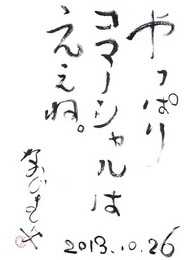 やっぱり
コマーシャルは
ええね。
2013.10.26